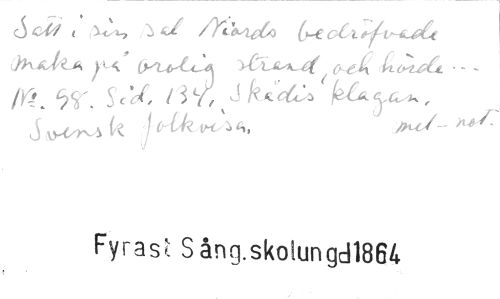 Satt i sin sal Niords bedröfvade
maka på orolig strand, och hörde ...
No. 98. Sid. 134, Skadis klagan.
Svensk folkvisa. mel-not.
Fyrast Sång.skolungd1864